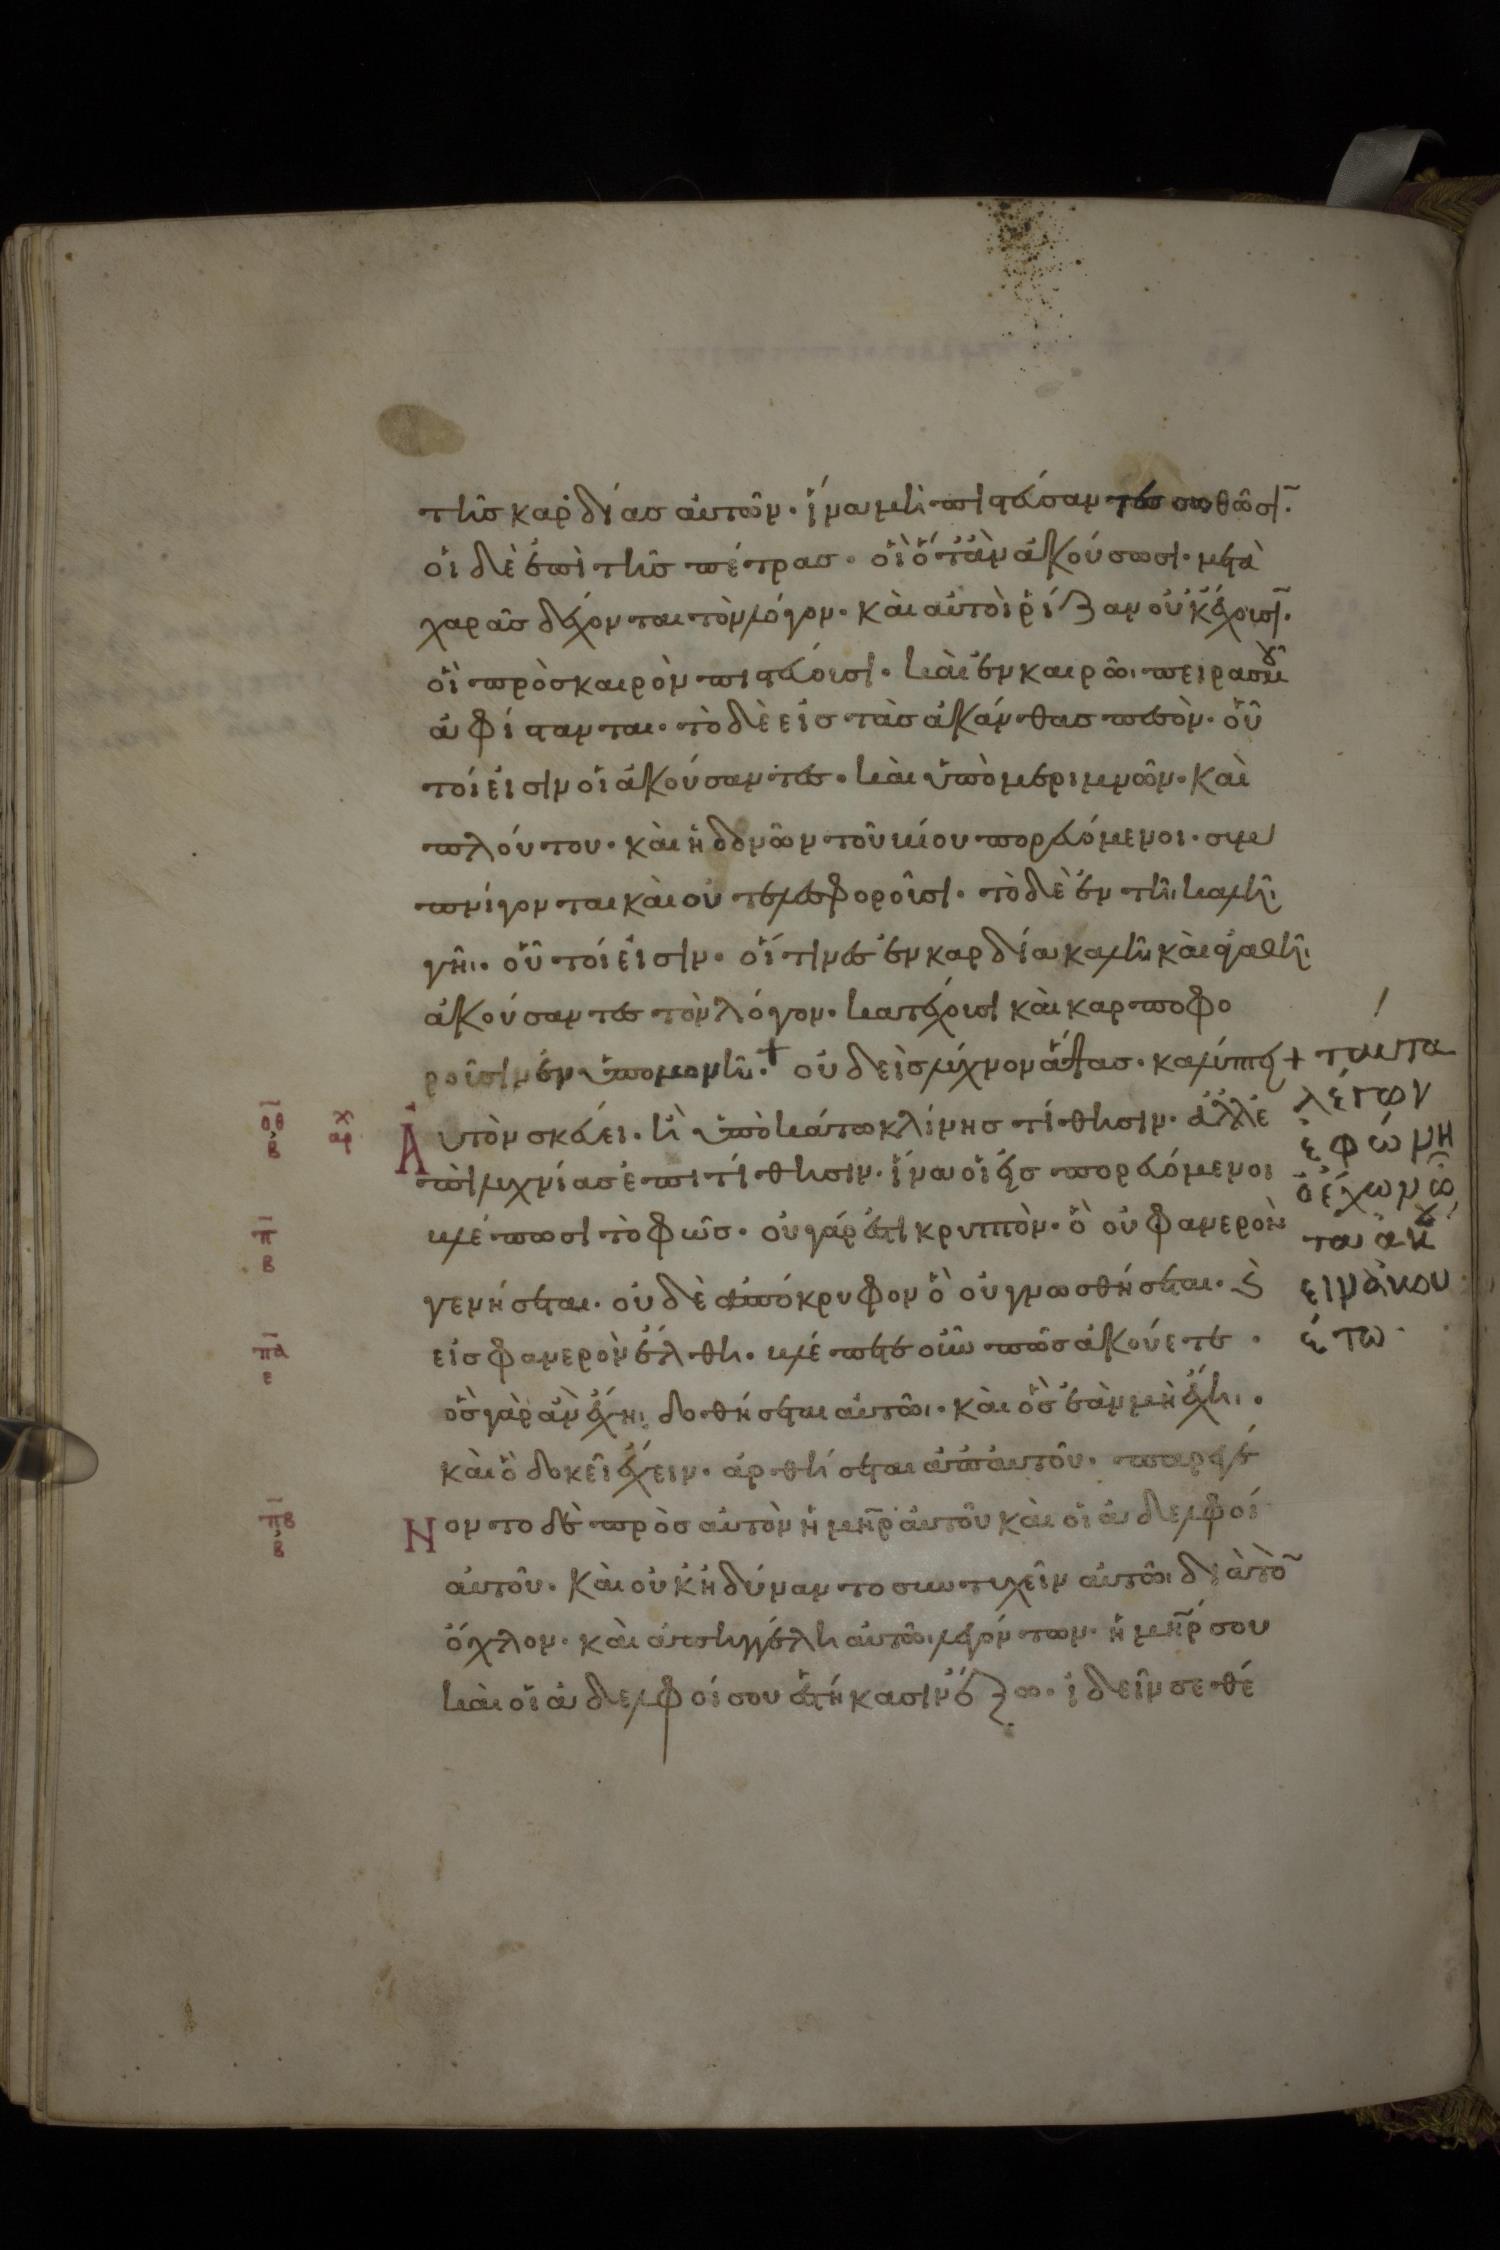 τῆς καρδίας αὐτῶν· ἵνα μὴ πιστεύσαντες σωθῶσῖ·
οἱ δὲ ἐπὶ τῆς πέτρας· οἳ ὅταν ἀκούσωσι· μετὰ
χαρᾶς δέχονται τὸν λόγον· καὶ αὐτοὶ ῥίζαν οὐκ ἔχουσῖ·
οἳ πρὸς καιρὸν πιστεύουσι· καὶ ἐν καιρῶι πειρασμοῦ
ἀφίστανται· τὸ δὲ εἰς τὰς ἀκάνθας πεσὸν· οὗ
τοί εἰσιν οἱ ἀκούσαντες· καὶ ὑπὸ μεριμνῶν· καὶ
πλούτου· καὶ ἡδονῶν τοῦ βίου πορευόμενοι· συμ
πνίγονται καὶ οὐ τελεσφοροῦσι· τὸ δὲ ἐν τῆι καλῆι
γῆι· οὗτοί εἰσιν· οἵτινες ἐν καρδία καλῆ καὶ ἀγαθῆι
ἀκούσαντες τὸν λόγον· κατέχουσι καὶ καρποφο
ροῦσιν ἐν ὑπομονῆ·+ οὐδεὶς λύχνον ἅψας· καλύπτει + ταῦτα
λέγων
ἐφώνη
ὁ ἔχων ὦ
τα ἀκού
ειν ἀκου
έτω·
οθ β
χ αφ
Αὐτὸν σκεύει· ἢ ὑπὸ κάτω κλίνης τίθησιν· ἀλλ' ἐ
πὶ λυχνίας ἐπιτίθησιν· ἵνα οἱ εἰσπορευόμενοι
π β
βλέπωσι τὸ φῶς· οὐ γάρ ἐστι κρυπτὸν· ὃ οὐ φανερὸν
γενήσεται· οὐδὲ ἀπόκρυφον ὃ οὐ γνωσθήσεται· καὶ
πα ε
εἰς φανερὸν ἔλθη· βλέπετε οὖν πῶς ἀκούετε·
ὃς γὰρ ἂν ἔχηι δοθήσεται αὐτῶι· καὶ ὃς ἐὰν μὴ ἔχηι·
καὶ ὃ δοκεῖ ἔχειν· ἀρθήσεται ἀπ' αὐτοῦ· παρεγέ
πβ β
Νοντο δὲ πρὸς αὐτὸν ἡ μη̄ρ αὐτοῦ καὶ οἱ ἀδελφοί
αὐτοῦ· καὶ οὐκ ἠδύναντο συντυχεῖν αὐτῶι διὰ τὸ͂
ὄχλον· καὶ ἀπηγγέλη αὐτῶι λεγόντων· ἡ μη̄ρ σου
καὶ οἱ ἀδελφοί σου ἑστήκασιν ἔξω· ἰδεῖν σε θέ